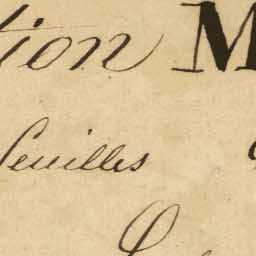 tion M
Feuilles
L